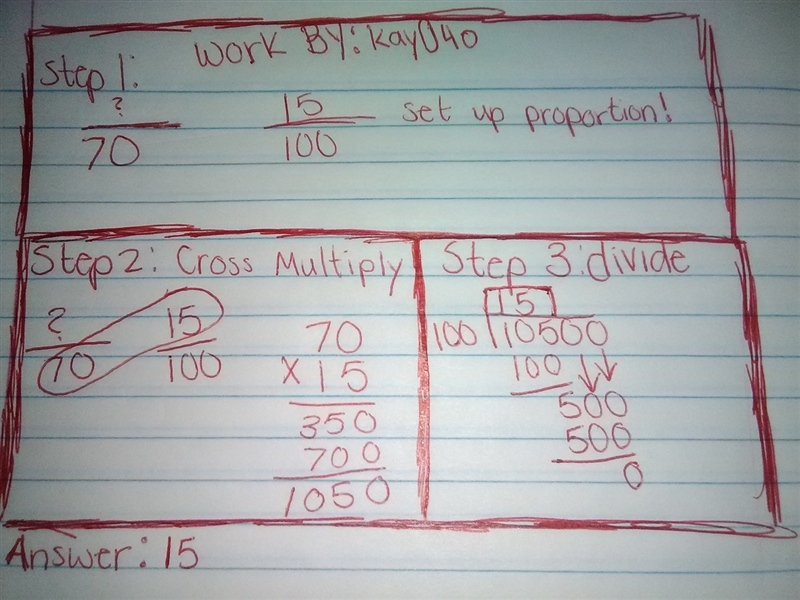 Work BY: kay040
Step 1:
?
70
15
100
set up proportion!
Step 2: Cross Multiply
?
70
15
100
70
x 15
350
700
1050
Step 3: divide
15
100 10500
100
500
500
0
Answer: 15